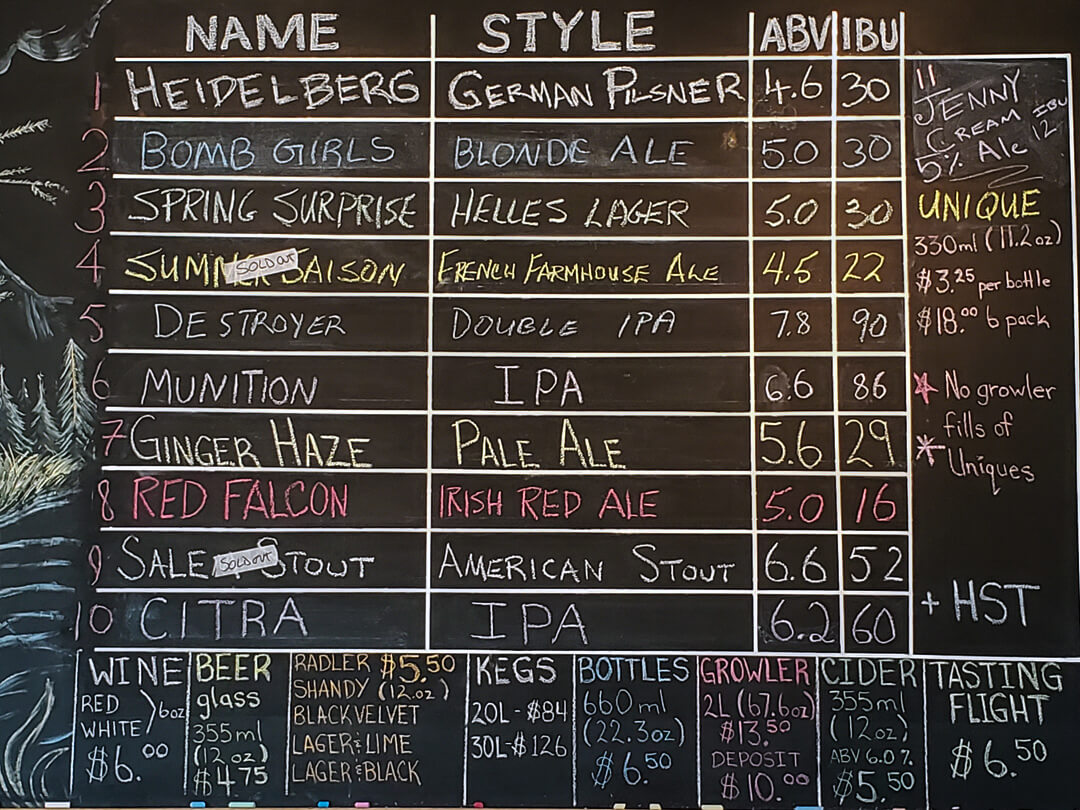 NAME STYLE ABV IBU
1 HEIDELBERG GERMAN PILSNER 4.6 30
2 BOMB GIRLS BLONDE ALE 5.0 30
3 SPRING SURPRISE HELLES LAGER 5.0 30
4 SUMMER SAISON FRENCH FARMHOUSE ALE 4.5 22
SOLD OUT
5 DESTROYER DOUBLE IPA 7.8 90
6 MUNITION IPA 6.6 86
7 GINGER HAZE PALE ALE 5.6 29
8 RED FALCON IRISH RED ALE 5.0 16
9 SALEM STOUT AMERICAN STOUT 6.6 52
SOLD OUT
10 CITRA IPA 6.2 60
11
JENNY
CREAM IBU
5% Ale 12
UNIQUE
330ml (11.2oz)
$3.25 per bottle
$18.00 6 pack
No growler
fills of
Uniques
+ HST
WINE
RED
WHITE
6oz
$6.00
BEER
glass
355ml
(12oz)
$4.75
RADLER $5.50
SHANDY (12.oz)
BLACKVELVET
LAGER & LIME
LAGER & BLACK
KEGS
20L - $84
30L - $126
BOTTLES
660ml
(22.3oz)
$6.50
GROWLER
2L (67.6oz)
$13.50
DEPOSIT
$10.00
CIDER
355ml
(12oz)
ABV 6.0%
$5.50
TASTING
FLIGHT
$6.50